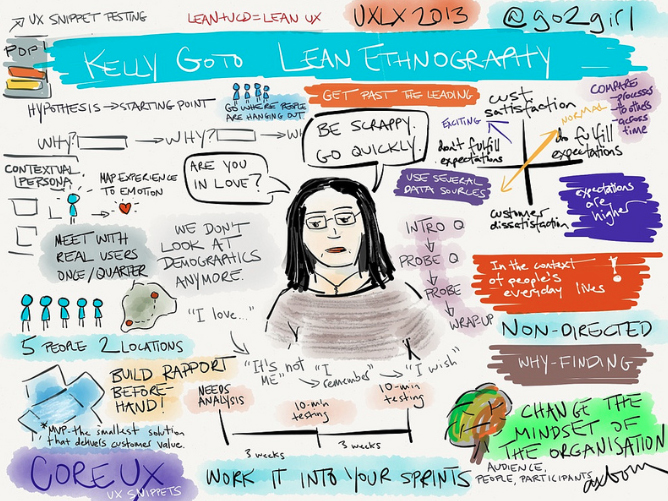 UX SNIPPET TESTING
LEAN+UCD=LEAN UX
UXLX 2013
@go2girl
PDF
KELLY GOTO LEAN ETHNOGRAPHY
HYPOTHESIS → STARTING POINT
GO WHERE PEOPLE
ARE HANGING OUT
GET PAST THE LEADING
WHY?
WHY?
CONTEXTUAL
PERSONA
MAP EXPERIENCE
TO EMOTION
ARE YOU
IN LOVE?
BE SCRAPPY.
GO QUICKLY.
cust
satisfaction
EXCITING
NORMAL
don't fulfill
expectations
do fulfill
expectations
customer
dissatisfaction
COMPARE
→processes
→to others
→across
time
USE SEVERAL
DATA SOURCES
expectations
are
higher
MEET WITH
REAL USERS
ONCE/QUARTER
WE DON'T
LOOK AT
DEMOGRAPHICS
ANYMORE.
INTRO Q
PROBE Q
PROBE
WRAP UP
In the context
of people's
everyday lives!
5 PEOPLE 2 LOCATIONS
"I love..."
"It's not
ME"
"I
remember"
"I wish"
NON-DIRECTED
WHY-FINDING
BUILD RAPPORT
BEFORE-
HAND!
*MVP-the smallest solution
that delivers customer value.
NEEDS
ANALYSIS
10-min
testing
10-min
testing
3 weeks
3 weeks
CHANGE THE
MINDSET OF
THE ORGANISATION
AUDIENCE,
PEOPLE, PARTICIPANTS
axbom
CORE UX
UX SNIPPETS
WORK IT INTO YOUR SPRINTS